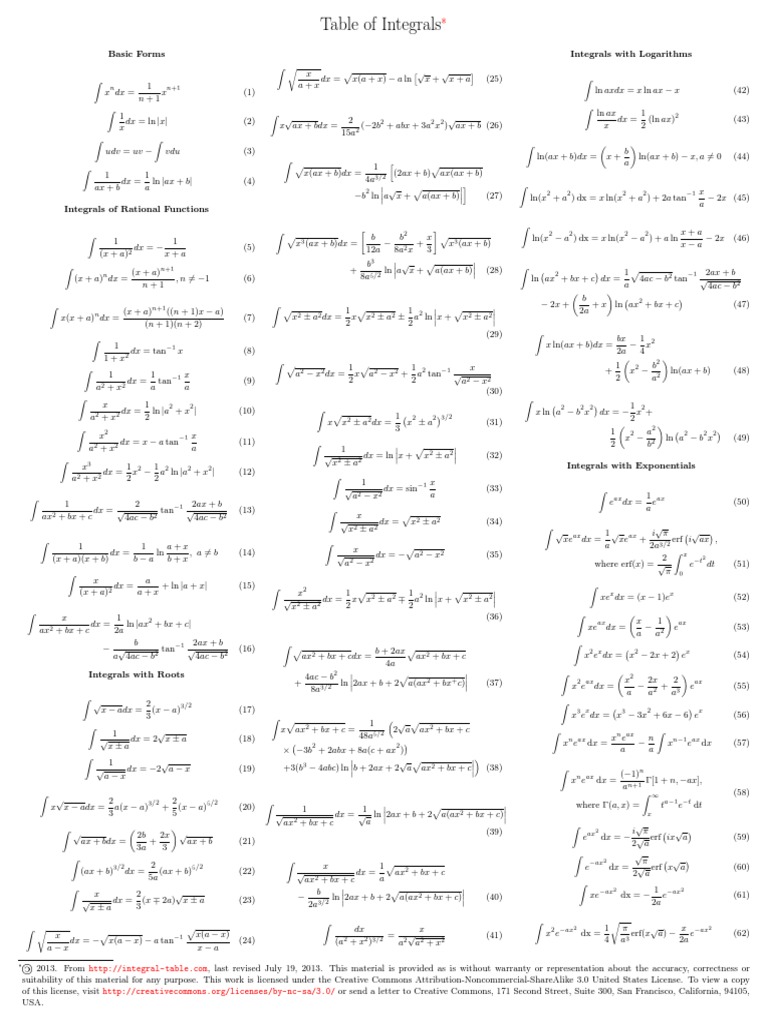 Table of Integrals*
Basic Forms
∫ xⁿdx = 1/(n+1) xⁿ⁺¹ (1)
∫ 1/x dx = ln |x| (2)
∫ udv = uv − ∫ vdu (3)
∫ 1/(ax + b) dx = 1/a ln |ax + b| (4)
Integrals of Rational Functions
∫ 1/(x + a)² dx = − 1/(x + a) (5)
∫ (x + a)ⁿdx = (x + a)ⁿ⁺¹/(n + 1), n ≠ −1 (6)
∫ x(x + a)ⁿdx = (x + a)ⁿ⁺¹((n + 1)x − a)/((n + 1)(n + 2)) (7)
∫ 1/(1 + x²) dx = tan⁻¹ x (8)
∫ 1/(a² + x²) dx = 1/a tan⁻¹ x/a (9)
∫ x/(a² + x²) dx = 1/2 ln |a² + x²| (10)
∫ x²/(a² + x²) dx = x − a tan⁻¹ x/a (11)
∫ x³/(a² + x²) dx = 1/2 x² − 1/2 a² ln |a² + x²| (12)
∫ 1/(ax² + bx + c) dx = 2/√(4ac − b²) tan⁻¹ (2ax + b)/√(4ac − b²) (13)
∫ 1/((x + a)(x + b)) dx = 1/(b − a) ln (a + x)/(b + x), a ≠ b (14)
∫ x/(x + a)² dx = a/(a + x) + ln |a + x| (15)
∫ x/(ax² + bx + c) dx = 1/2a ln |ax² + bx + c|
− b/(a√(4ac − b²)) tan⁻¹ (2ax + b)/√(4ac − b²) (16)
Integrals with Roots
∫ √(x − a) dx = 2/3 (x − a)^(3/2) (17)
∫ 1/√(x ± a) dx = 2√(x ± a) (18)
∫ 1/√(a − x) dx = −2√(a − x) (19)
∫ x√(x − a) dx = 2/3 a(x − a)^(3/2) + 2/5 (x − a)^(5/2) (20)
∫ √(ax + b) dx = (2b/3a + 2x/3) √(ax + b) (21)
∫ (ax + b)^(3/2) dx = 2/5a (ax + b)^(5/2) (22)
∫ x/√(x ± a) dx = 2/3 (x ∓ 2a)√(x ± a) (23)
∫ √(x/(a − x)) dx = −√(x(a − x)) − a tan⁻¹ √(x(a − x))/(x − a) (24)
∫ √(x/(a + x)) dx = √(x(a + x)) − a ln [√x + √(x + a)] (25)
∫ x√(ax + b) dx = 2/15a² (−2b² + abx + 3a²x²)√(ax + b) (26)
∫ √(x(ax + b)) dx = 1/4a^(3/2) [(2ax + b)√(ax(ax + b))
−b² ln |a√x + √(a(ax + b))|] (27)
∫ √(x³(ax + b)) dx = [b/12a − b²/8a²x + x/3] √(x³(ax + b))
+ b³/8a^(5/2) ln |a√x + √(a(ax + b))| (28)
∫ √(x² ± a²) dx = 1/2 x√(x² ± a²) ± 1/2 a² ln |x + √(x² ± a²)|
(29)
∫ √(a² − x²) dx = 1/2 x√(a² − x²) + 1/2 a² tan⁻¹ x/√(a² − x²)
(30)
∫ x√(x² ± a²) dx = 1/3 (x² ± a²)^(3/2) (31)
∫ 1/√(x² ± a²) dx = ln |x + √(x² ± a²)| (32)
∫ 1/√(a² − x²) dx = sin⁻¹ x/a (33)
∫ x/√(x² ± a²) dx = √(x² ± a²) (34)
∫ x/√(a² − x²) dx = −√(a² − x²) (35)
∫ x²/√(x² ± a²) dx = 1/2 x√(x² ± a²) ∓ 1/2 a² ln |x + √(x² ± a²)|
(36)
∫ √(ax² + bx + c) dx = (b + 2ax)/4a √(ax² + bx + c)
+ (4ac − b²)/8a^(3/2) ln |2ax + b + 2√(a(ax² + bx⁺c)| (37)
∫ x√(ax² + bx + c) = 1/48a^(5/2) (2√a√(ax² + bx + c)
× (−3b² + 2abx + 8a(c + ax²))
+3(b³ − 4abc) ln |b + 2ax + 2√a√(ax² + bx + c)|) (38)
∫ 1/√(ax² + bx + c) dx = 1/√a ln |2ax + b + 2√(a(ax² + bx + c))|
(39)
∫ x/√(ax² + bx + c) dx = 1/a √(ax² + bx + c)
− b/2a^(3/2) ln |2ax + b + 2√(a(ax² + bx + c))| (40)
∫ dx/(a² + x²)^(3/2) = x/(a²√(a² + x²)) (41)
Integrals with Logarithms
∫ ln ax dx = x ln ax − x (42)
∫ ln ax/x dx = 1/2 (ln ax)² (43)
∫ ln(ax + b)dx = (x + b/a) ln(ax + b) − x, a ≠ 0 (44)
∫ ln(x² + a²) dx = x ln(x² + a²) + 2a tan⁻¹ x/a − 2x (45)
∫ ln(x² − a²) dx = x ln(x² − a²) + a ln (x + a)/(x − a) − 2x (46)
∫ ln (ax² + bx + c) dx = 1/a √(4ac − b²) tan⁻¹ (2ax + b)/√(4ac − b²)
− 2x + (b/2a + x) ln (ax² + bx + c) (47)
∫ x ln(ax + b)dx = bx/2a − 1/4 x²
+ 1/2 (x² − b²/a²) ln(ax + b) (48)
∫ x ln (a² − b²x²) dx = −1/2 x²+
1/2 (x² − a²/b²) ln (a² − b²x²) (49)
Integrals with Exponentials
∫ e^(ax) dx = 1/a e^(ax) (50)
∫ √x e^(ax) dx = 1/a √x e^(ax) + i√π/2a^(3/2) erf (i√(ax)),
where erf(x) = 2/√π ∫₀ˣ e^(−t²) dt (51)
∫ xeˣdx = (x − 1)eˣ (52)
∫ xe^(ax) dx = (x/a − 1/a²) e^(ax) (53)
∫ x²eˣdx = (x² − 2x + 2) eˣ (54)
∫ x²e^(ax) dx = (x²/a − 2x/a² + 2/a³) e^(ax) (55)
∫ x³eˣdx = (x³ − 3x² + 6x − 6) eˣ (56)
∫ xⁿe^(ax) dx = xⁿe^(ax)/a − n/a ∫ xⁿ⁻¹e^(ax) dx (57)
∫ xⁿe^(ax) dx = (−1)ⁿ/aⁿ⁺¹ Γ[1 + n, −ax],
where Γ(a, x) = ∫ₓ^∞ t^(a−1)e^(−t) dt (58)
∫ e^(ax²) dx = − i√π/2√a erf (ix√a) (59)
∫ e^(−ax²) dx = √π/2√a erf (x√a) (60)
∫ xe^(−ax²) dx = − 1/2a e^(−ax²) (61)
∫ x²e^(−ax²) dx = 1/4 √(π/a³) erf(x√a) − x/2a e^(−ax²) (62)
* 🄯 2013. From http://integral-table.com, last revised July 19, 2013. This material is provided as is without warranty or representation about the accuracy, correctness or
suitability of this material for any purpose. This work is licensed under the Creative Commons Attribution-Noncommercial-ShareAlike 3.0 United States License. To view a copy
of this license, visit http://creativecommons.org/licenses/by-nc-sa/3.0/ or send a letter to Creative Commons, 171 Second Street, Suite 300, San Francisco, California, 94105,
USA.